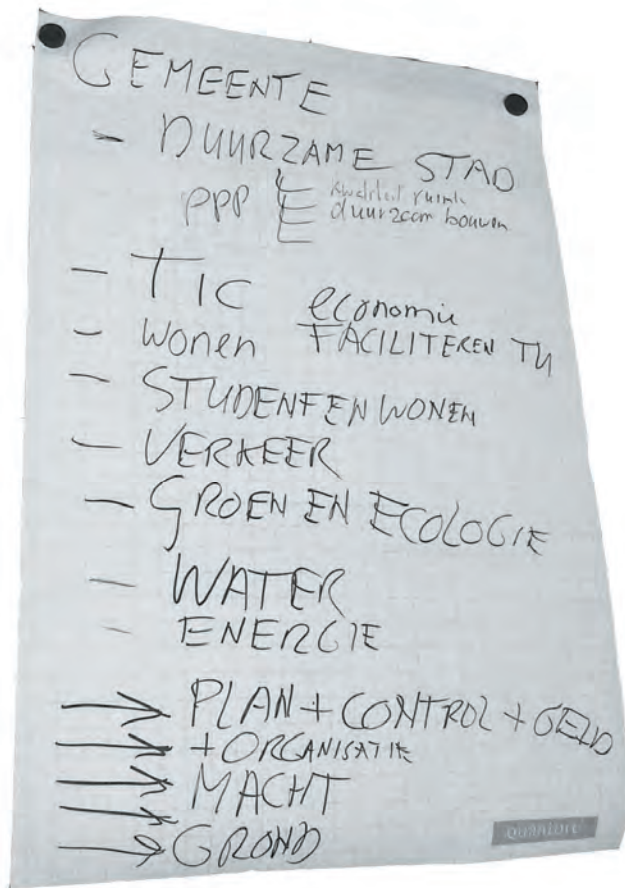 GEMEENTE
- DUURZAME STAD
PPP kwaliteit ruimte
duurzaam bouwen
- TIC economie
- wonen FACILITEREN TU
- STUDENTEN WONEN
- VERKEER
- GROEN EN ECOLOGIE
- WATER
- ENERGIE
→ PLAN + CONTROL + GELD
→ + ORGANISATIE
→ MACHT
→ GROND
Quantore